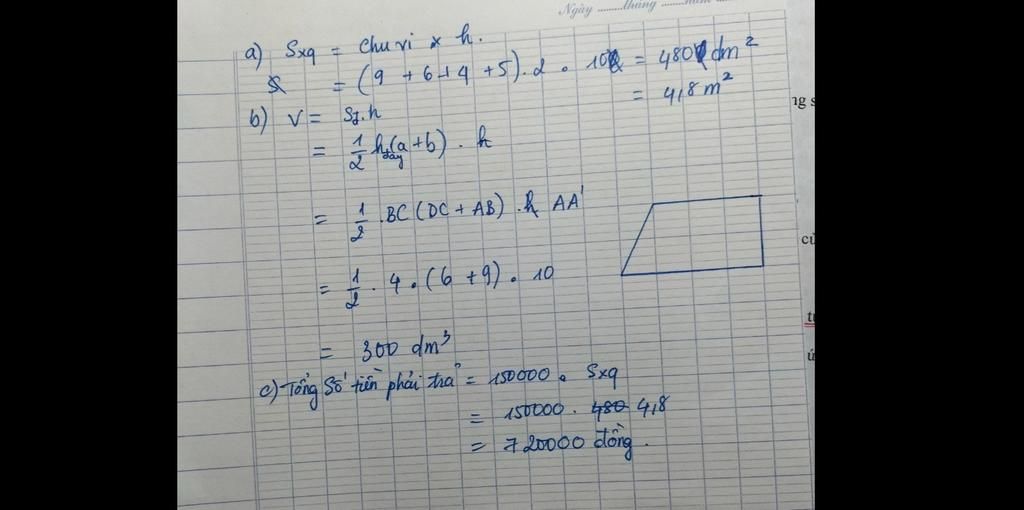 Ngày ......... tháng ......... năm
a) Sxq = Chu vi x h.
= (9 + 6 + 4 + 5) . 2 . 10 = 480 dm²
= 4,8 m²
b) V = Sđ.h
= 1/2 h đáy (a+b) . h
= 1/2 . BC (DC + AB) . AA'
= 1/2 . 4 . (6 + 9) . 10
= 300 dm³
c) Tổng số tiền phải trả = 150000 . Sxq
= 150000 . 480 4,8
= 720000 đồng.